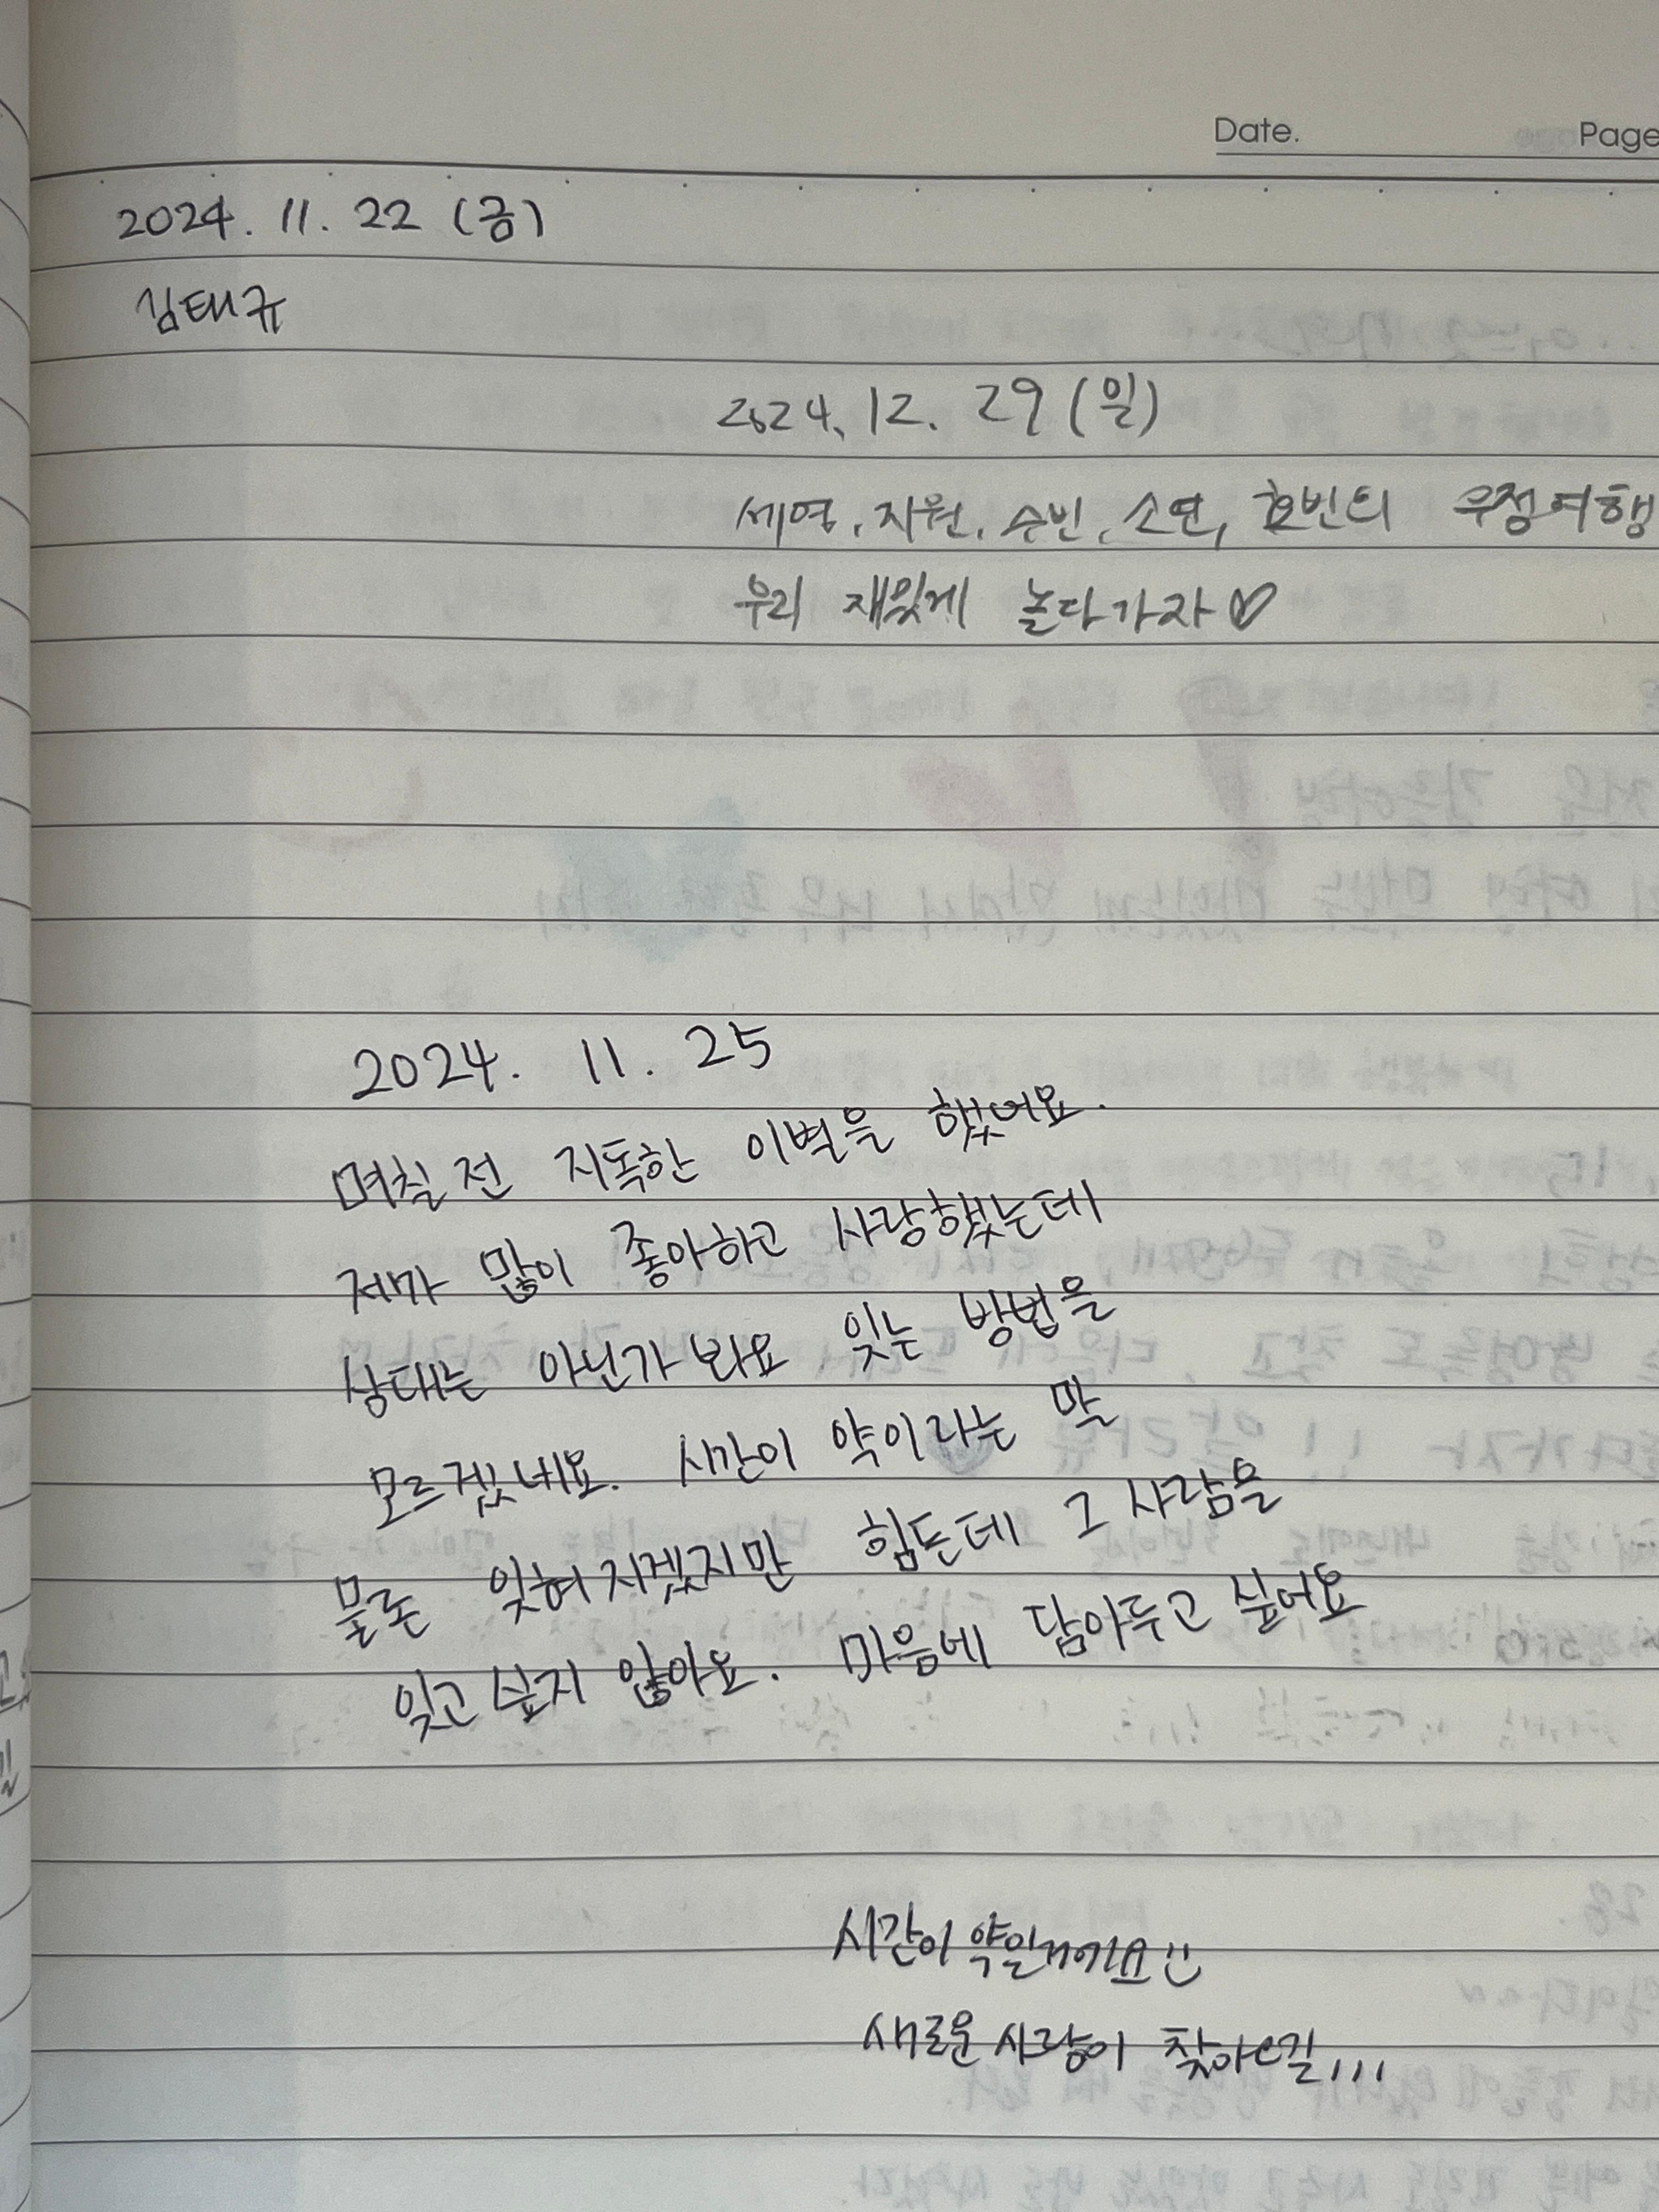 Date. Page
2024. 11. 22 (금)
김태규
2024. 12. 29 (일)
세영, 지원, 수빈, 소연, 효빈의 우정여행
우리 재밌게 놀다가자♡
2024. 11. 25
며칠 전 지독한 이별을 했어요.
제가 많이 좋아하고 사랑했는데
상대는 아닌가봐요 잊는 방법을
모르겠네요. 시간이 약이라는 말
물론 잊혀지겠지만 힘든데 그 사람을
잊고 싶지 않아요. 마음에 담아두고 싶어요
시간이 약일거에요!!
새로운 사랑이 찾아오길...